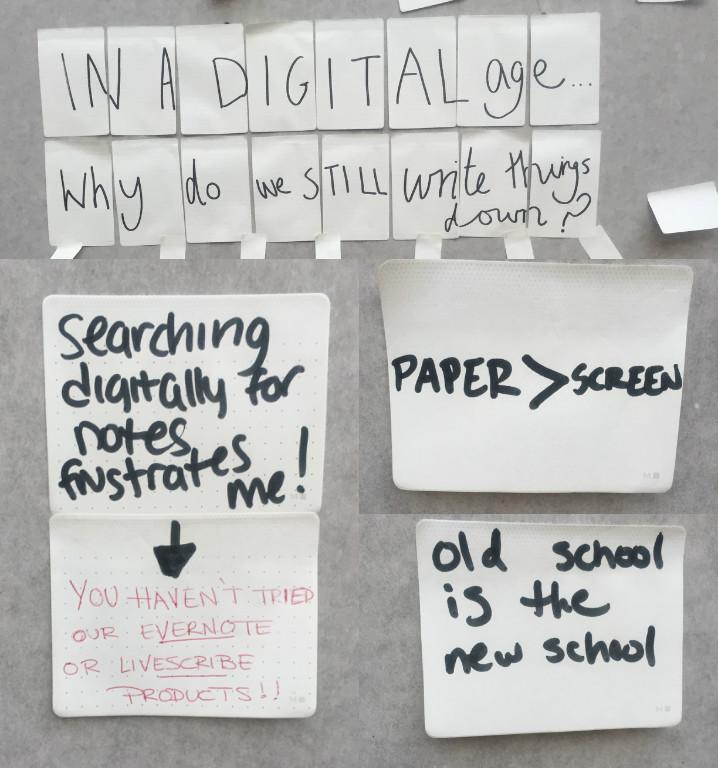 IN A DIGITAL age...
Why do we STILL write things
down?
Searching
digitally for
notes
frustrates
me!
YOU HAVEN'T TRIED
OUR EVERNOTE
OR LIVESCRIBE
PRODUCTS!!
PAPER > SCREEN
old school
is the
new school